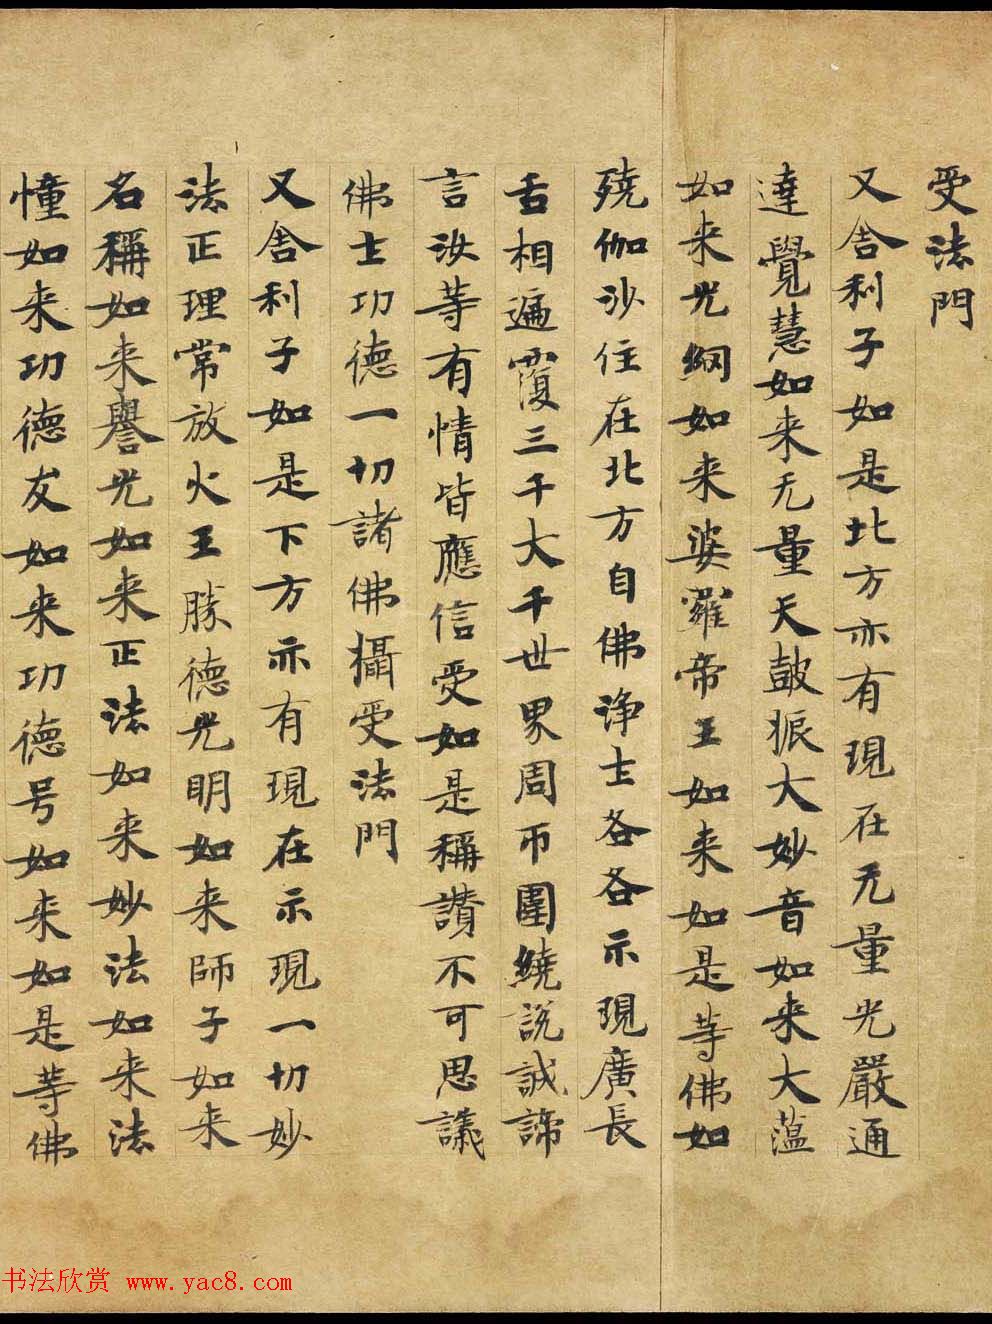 受法門
又舍利子如是北方亦有現在无量光嚴通
達覺慧如来无量天鼓振大妙音如来大蕴
如来光網如来娑羅帝王如来如是等佛如
殑伽沙住在北方自佛浄土各各示現廣長
舌相遍覆三千大千世界周帀圍繞說誠諦
言汝等有情皆應信受如是稱讚不可思議
佛土功德一切諸佛攝受法門
又舍利子如是下方亦有現在示現一切妙
法正理常放火王勝德光明如来師子如来
名稱如来譽光如来正法如来妙法如来法
幢如来功德友如来功德号如来如是等佛
书法欣赏 www.yac8.com